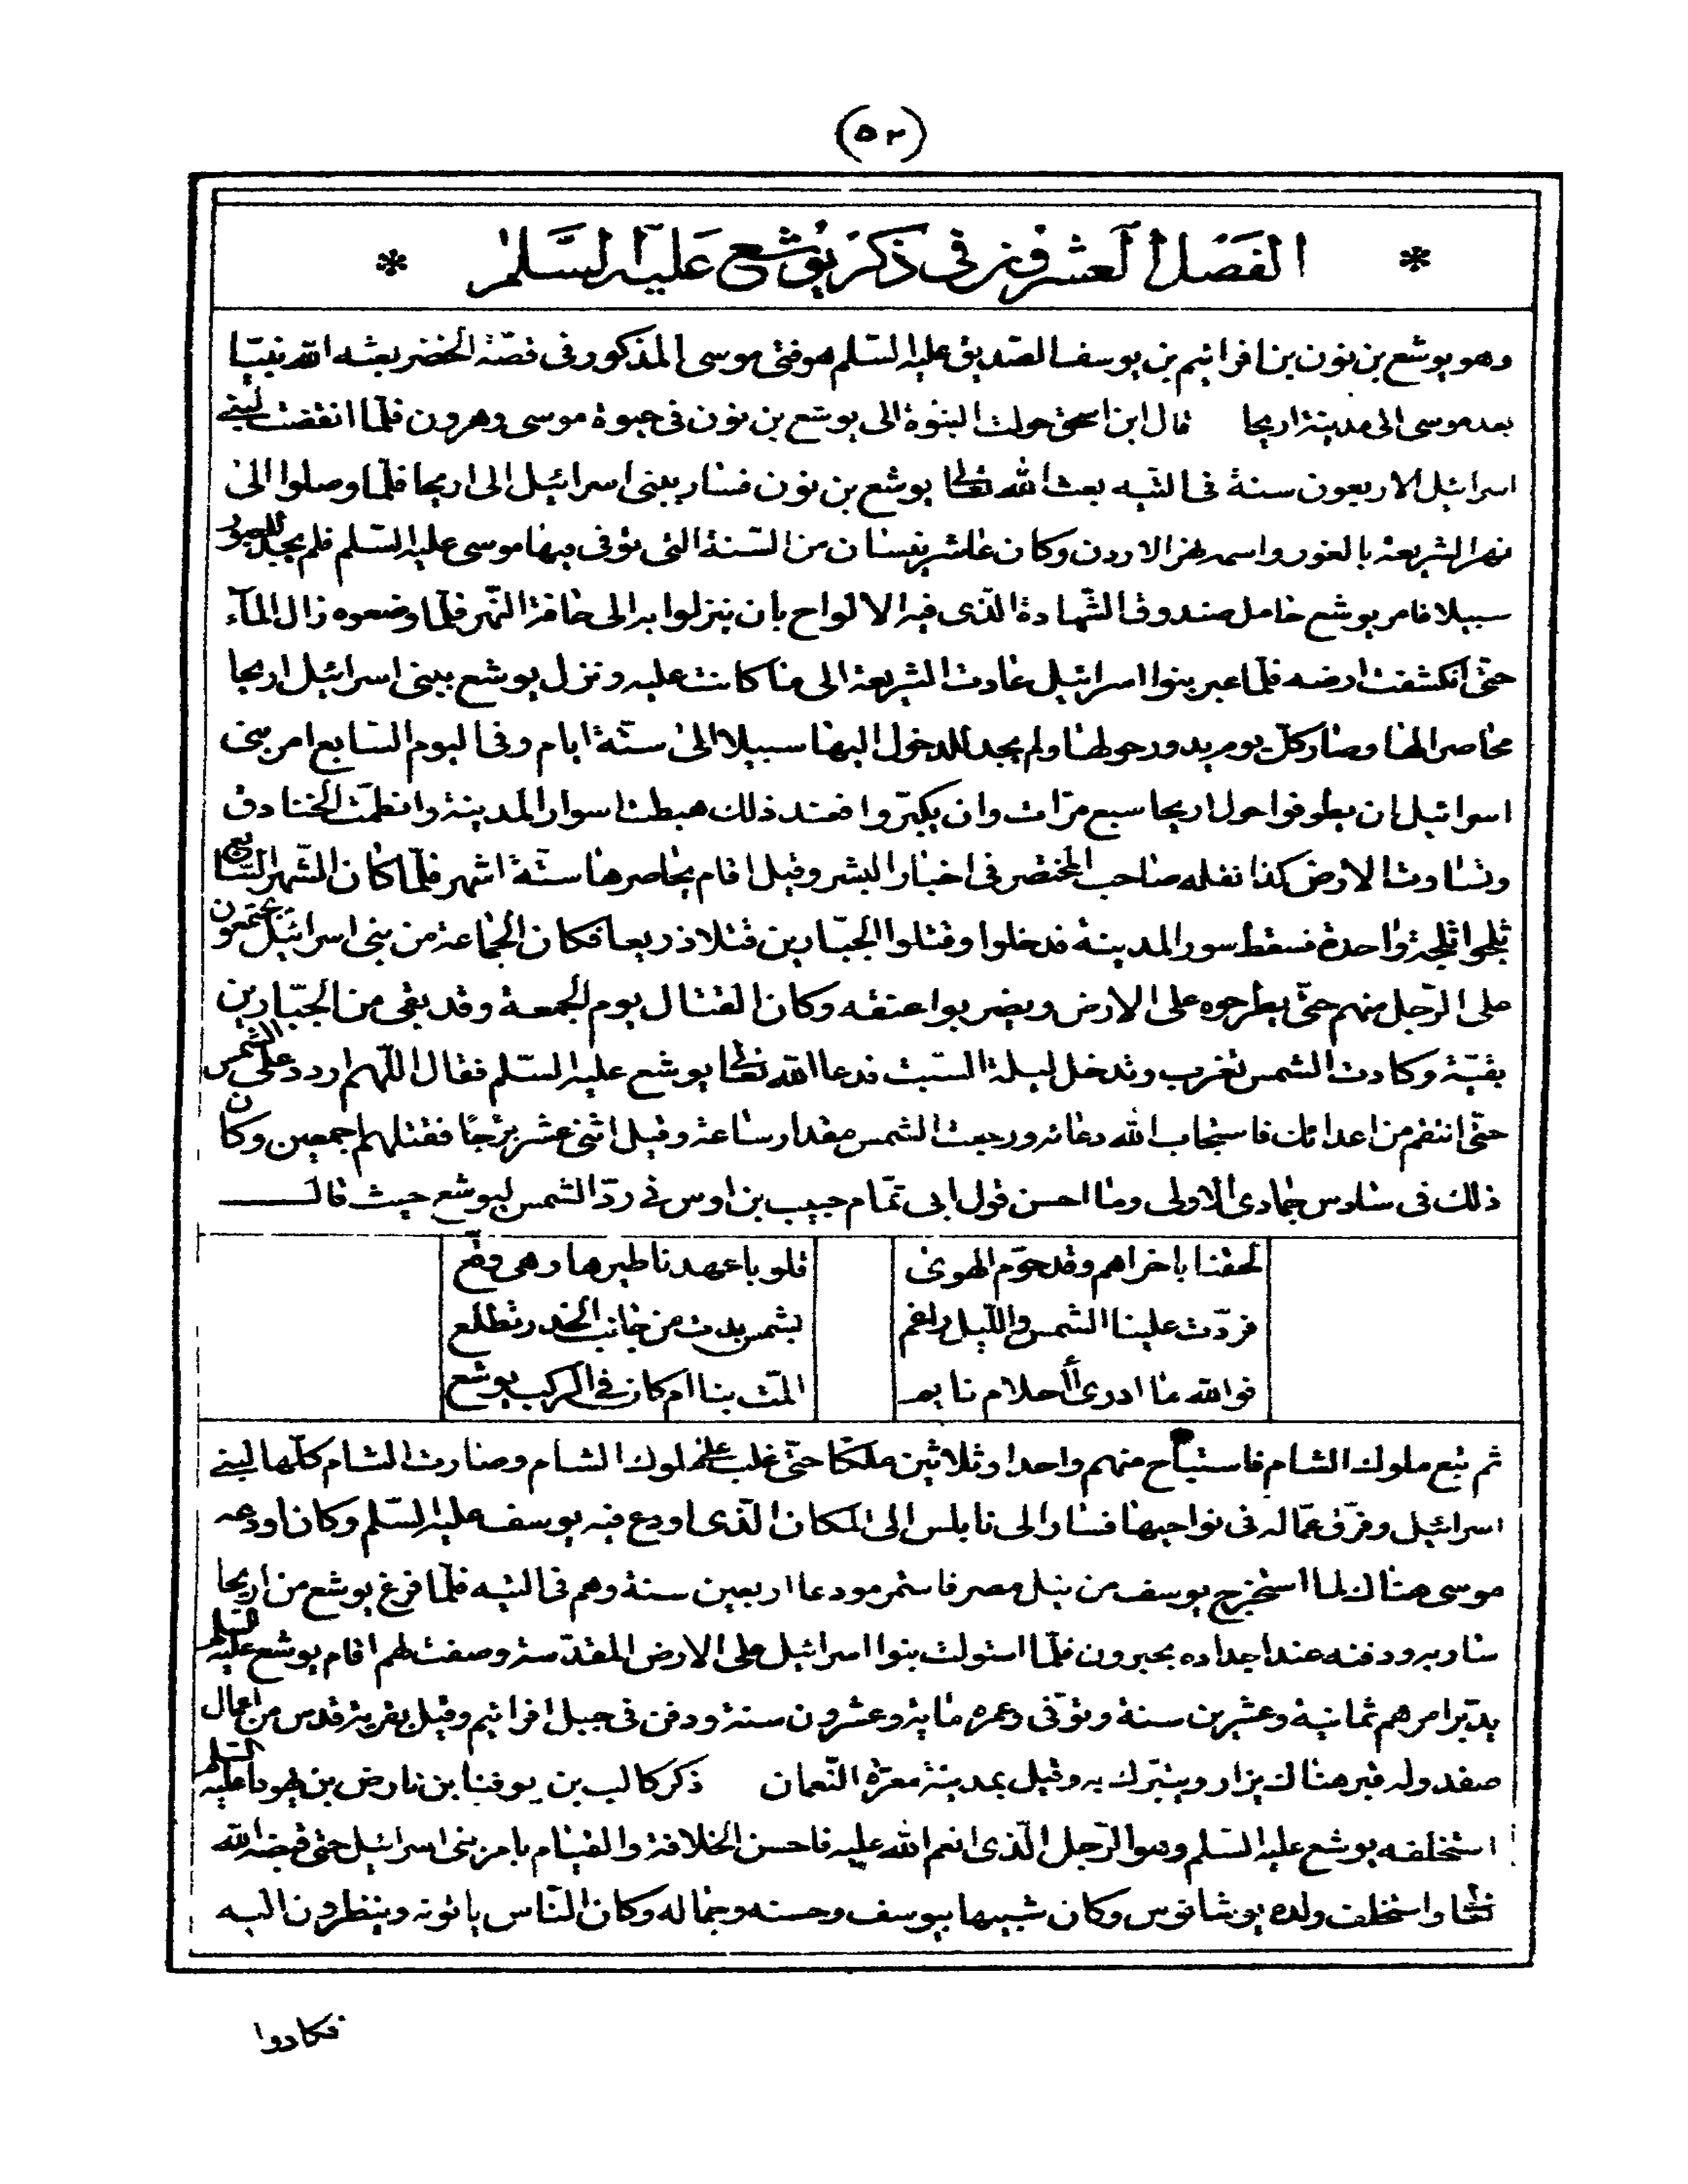 (٥٢)
* الفصل العشرون في ذكر يوشع عليه السلم *
وهو يوشع بن نون بن افرائيم بن يوسف الصديق عليه السلم هو فتى موسى المذكور فى قصّة الخضر بعثه الله نبيّا
بعد موسى الى مدينة اريحا قال ابن اسحق حولت النبوّة الى يوشع بن نون فى حيوة موسى وهرون فلمّا انقضت لبنى
اسرائيل الاربعون سنة فى التيه بعث الله تعالى يوشع بن نون فسار ببنى اسرائيل الى اريحا فلمّا وصلوا الى
نهر الشريعة بالغور واسمه نهر الاردن وكان عاشر نيسان من السّنة التى توفى فيها موسى عليه السّلم فلم يجد للعبور
سبيلا فامر يوشع حامل صندوق الشّهادة الّذى فيه الالواح بان ينزلوا به الى حافة النّهر فلمّا وضعوه زال المآء
حتّى انكشفت ارضه فلمّا عبر بنوا اسرائيل عادت الشريعة الى ما كانت عليه ونزل يوشع ببنى اسرائيل اريحا
محاصرا لها وصار كلّ يوم يدور حولها ولم يجد للدخول اليها سبيلا الى ستّة ايام وفى اليوم السّابع امر بنى
اسرائيل ان يطوفوا حول اريحا سبع مرّات وان يكبّروا فعند ذلك هبطت اسوار المدينة وانطمّت الخنادق
وتساوت الارض كذا نقله صاحب المختصر فى اخبار البشر وقيل اقام يحاصرها ستّة اشهر فلمّا كان الشّهر السّابع
ثلجوا ثلجة واحدة فسقط سور المدينة فدخلوا وقتلوا الجبّارين قتلا ذريعا فكان الجماعة من بنى اسرائيل يجتمعون
على الرّجل منهم حتّى يطرحوه على الارض ويضربوا عنقه وكان القتال يوم الجمعة وقد بقى من الجبّارين
بقيّة وكادت الشمس تغرب وتدخل ليلة السّبت فدعا الله تعالى يوشع عليه السّلم فقال اللّهم اردد علىّ الشمس
حتّى انتقم من اعدائك فاستجاب الله دعائه ورجعت الشمس مقدار ساعة وقيل اثنى عشر برجًا فقتلهم اجمعين وكان
ذلك فى سادس جمادى الاولى وما احسن قول ابى تمّام حبيب بن اوس فى ردّ الشمس ليوشع حيث قال
لحقنا باخراهم وقد حوّم الهوى قلوبا عهدنا طيرها وهى وقّع
فردّت علينا الشمس والليل راغم بشمس بدت من جانب الخدر تطلع
فوالله ما ادرى أأحلام نايم المّت بنا ام كان فى الركب يوشع
ثم تبع ملوك الشام فاستباح منهم واحدا وثلاثين ملكا حتّى غلب على ملوك الشام وصارت الشام كلّها لبنى
اسرائيل وفرّق عمّاله فى نواحيها فسار الى نابلس الى المكان الّذى اودع فيه يوسف عليه السّلم وكان اودعه
موسى هناك لما استخرج يوسف من نيل مصر فاستمر مودعا اربعين سنة وهم فى التيه فلمّا فرغ يوشع من اريحا
سار به ودفنه عند اجداده بحبرون فلمّا استولت بنوا اسرائيل على الارض المقدّسة وصفت لهم اقام يوشع عليه السّلم
يدبّر امرهم ثمانية وعشرين سنة وتوّفى وعمره ماية وعشرون سنة ودفن فى جبل افرائيم وقيل بقرية قدس من اعمال
صفد وله قبر هناك يزار ويتبرّك به وقيل بمدينة معرّة النّعمان ذكر كالب بن يوفنا بن نارض بن يهودا عليه السّلم
استخلفه يوشع عليه السّلم وهو الرّجل الّذى انعم الله عليه فاحسن الخلافة والقيام بامر بنى اسرائيل حتّى قبضه الله
تعالى واستخلف ولده يوشاقوس وكان شبيها بيوسف وحسنه وجماله وكان النّاس ياتونه وينظرون اليه
فكادوا